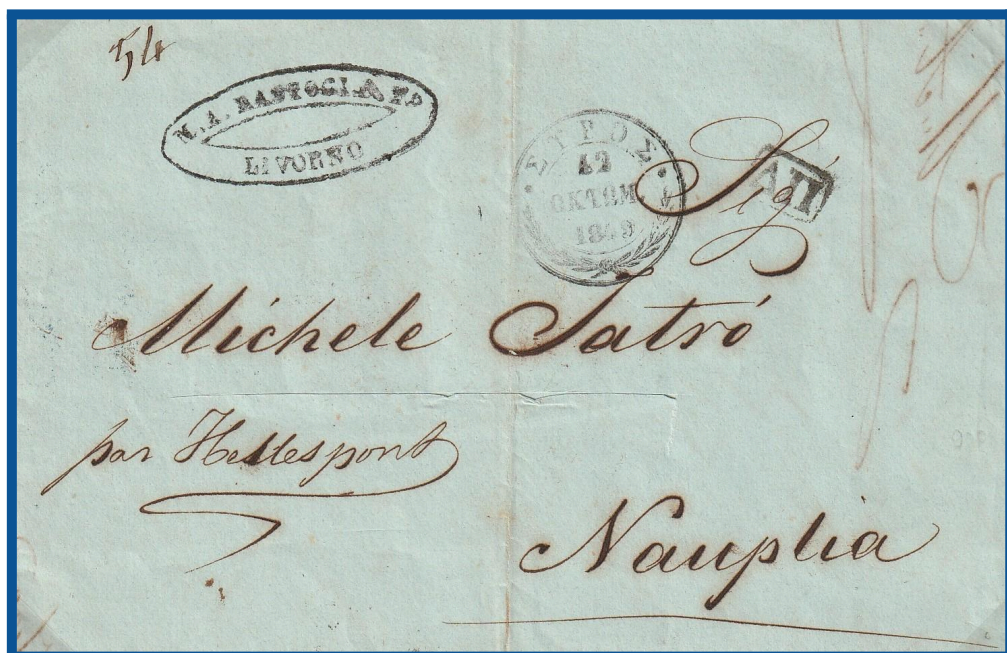 54
M. A. BASTOGI & Fo
LIVORNO
ΣΥΡΟΣ
12
ΟΚΤΩΜ.
1849
ΑΠ
Sig
Michele Iatró
par Hellespont
Nauplia